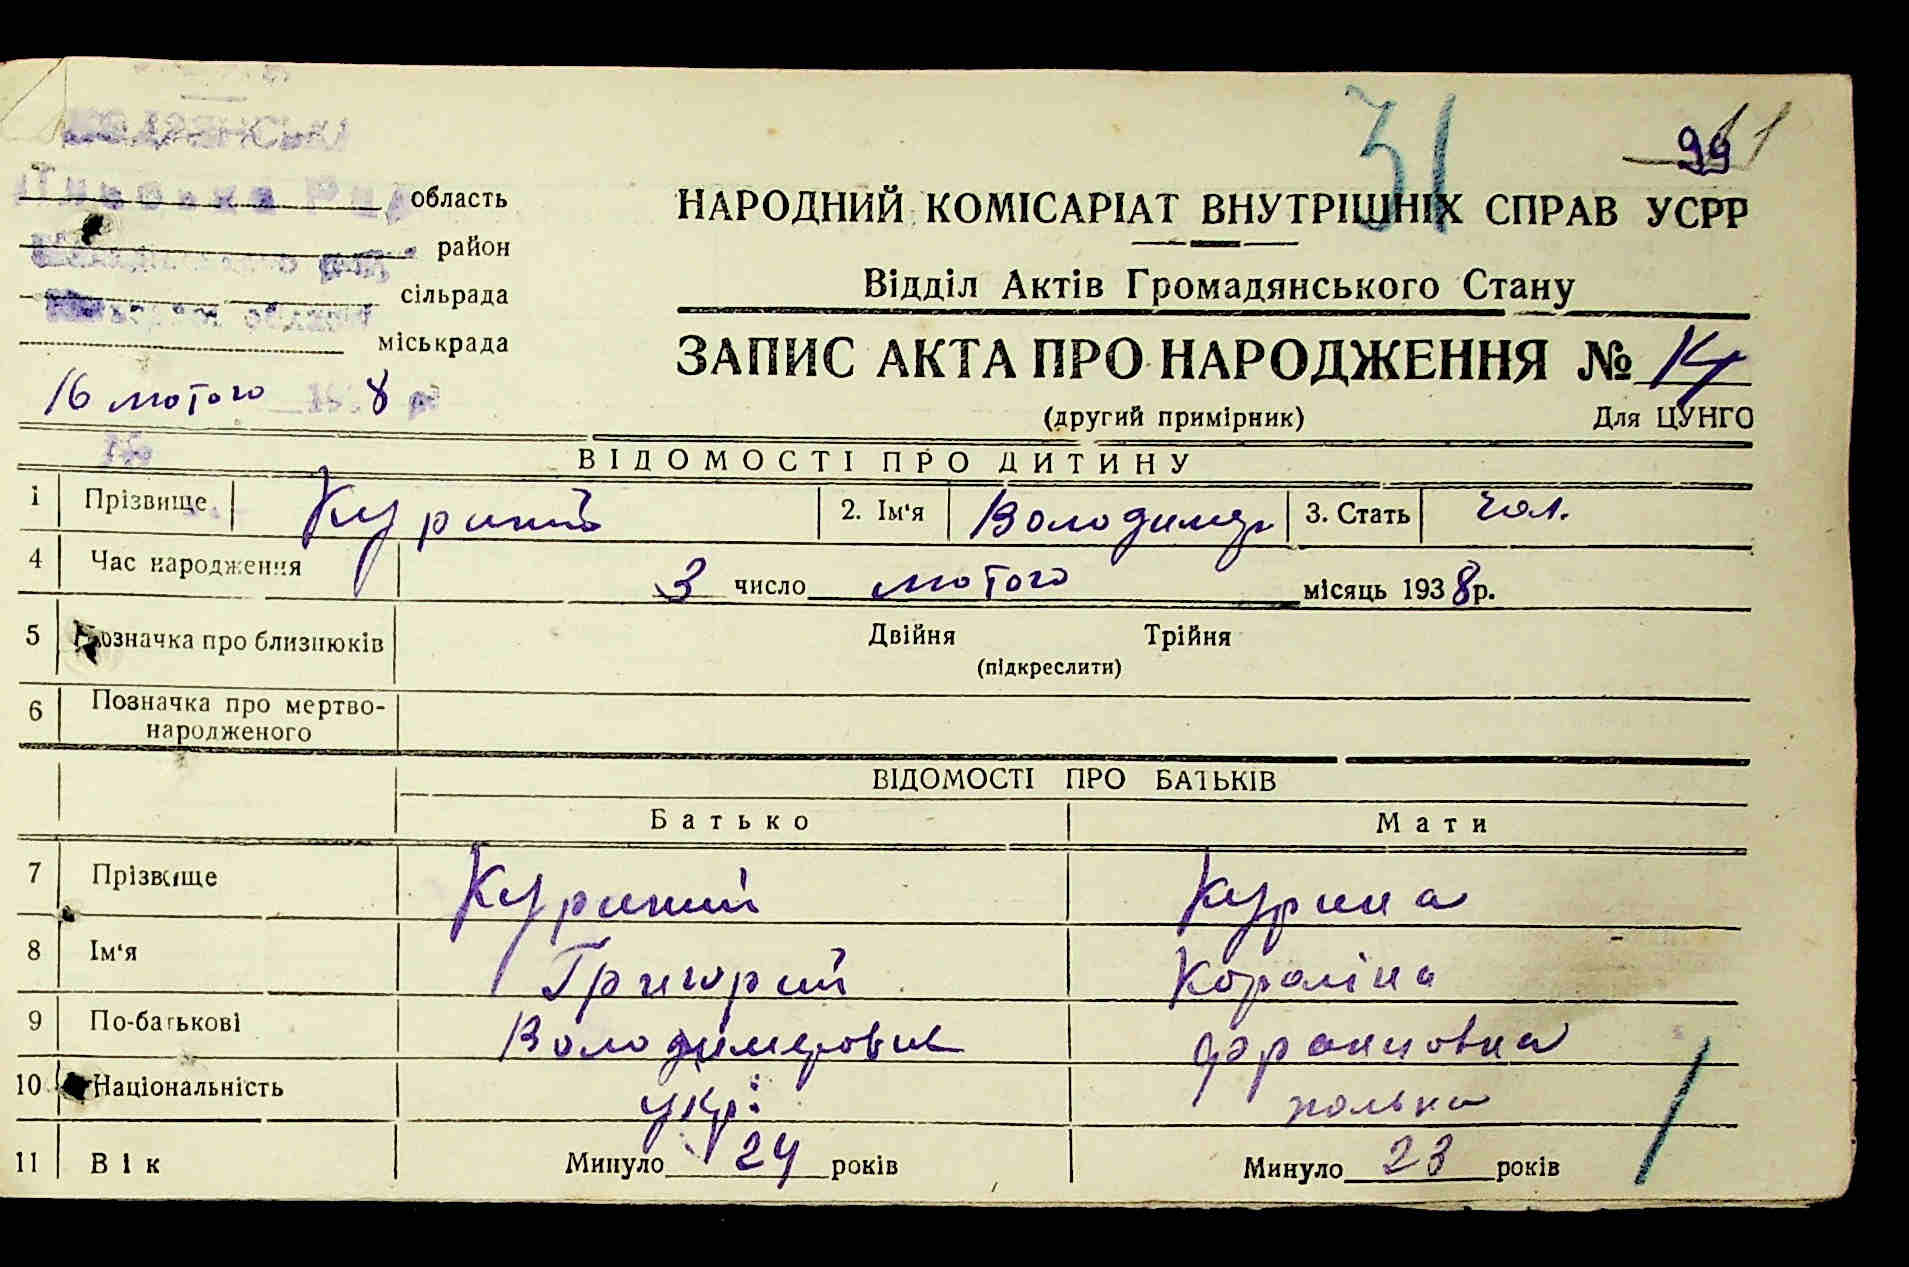 31
99
область
НАРОДНИЙ КОМІСАРІАТ ВНУТРІШНІХ СПРАВ УСРР
район
Відділ Актів Громадянського Стану
сільрада
міськрада
ЗАПИС АКТА ПРО НАРОДЖЕННЯ № 14
16 лютого 8
(другий примірник) Для ЦУНГО
ВІДОМОСТІ ПРО ДИТИНУ
1 Прізвище Куриний 2. Ім'я Володимер 3. Стать чол.
4 Час народження 3 число лютого місяць 1938 р.
5 Позначка про близнюків Двійня Трійня
(підкреслити)
6 Позначка про мертво-
народженого
ВІДОМОСТІ ПРО БАТЬКІВ
Батько Мати
7 Прізвище Куриний Курина
8 Ім'я Григорий Кораліна
9 По-батькові Володимерович Францовна
10 Національність укр. полька
11 Вік Минуло 24 років Минуло 23 років